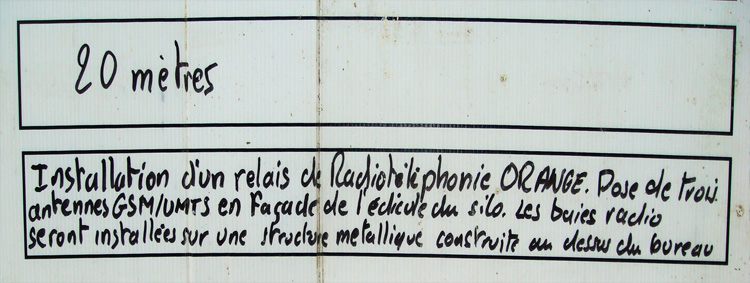 20 mètres
Installation d'un relais de Radiotéléphonie ORANGE. Pose de trois
antennes GSM/UMTS en façade de l'édicule du silo. Les baies radio
seront installées sur une structure metallique construite au dessus du bureau